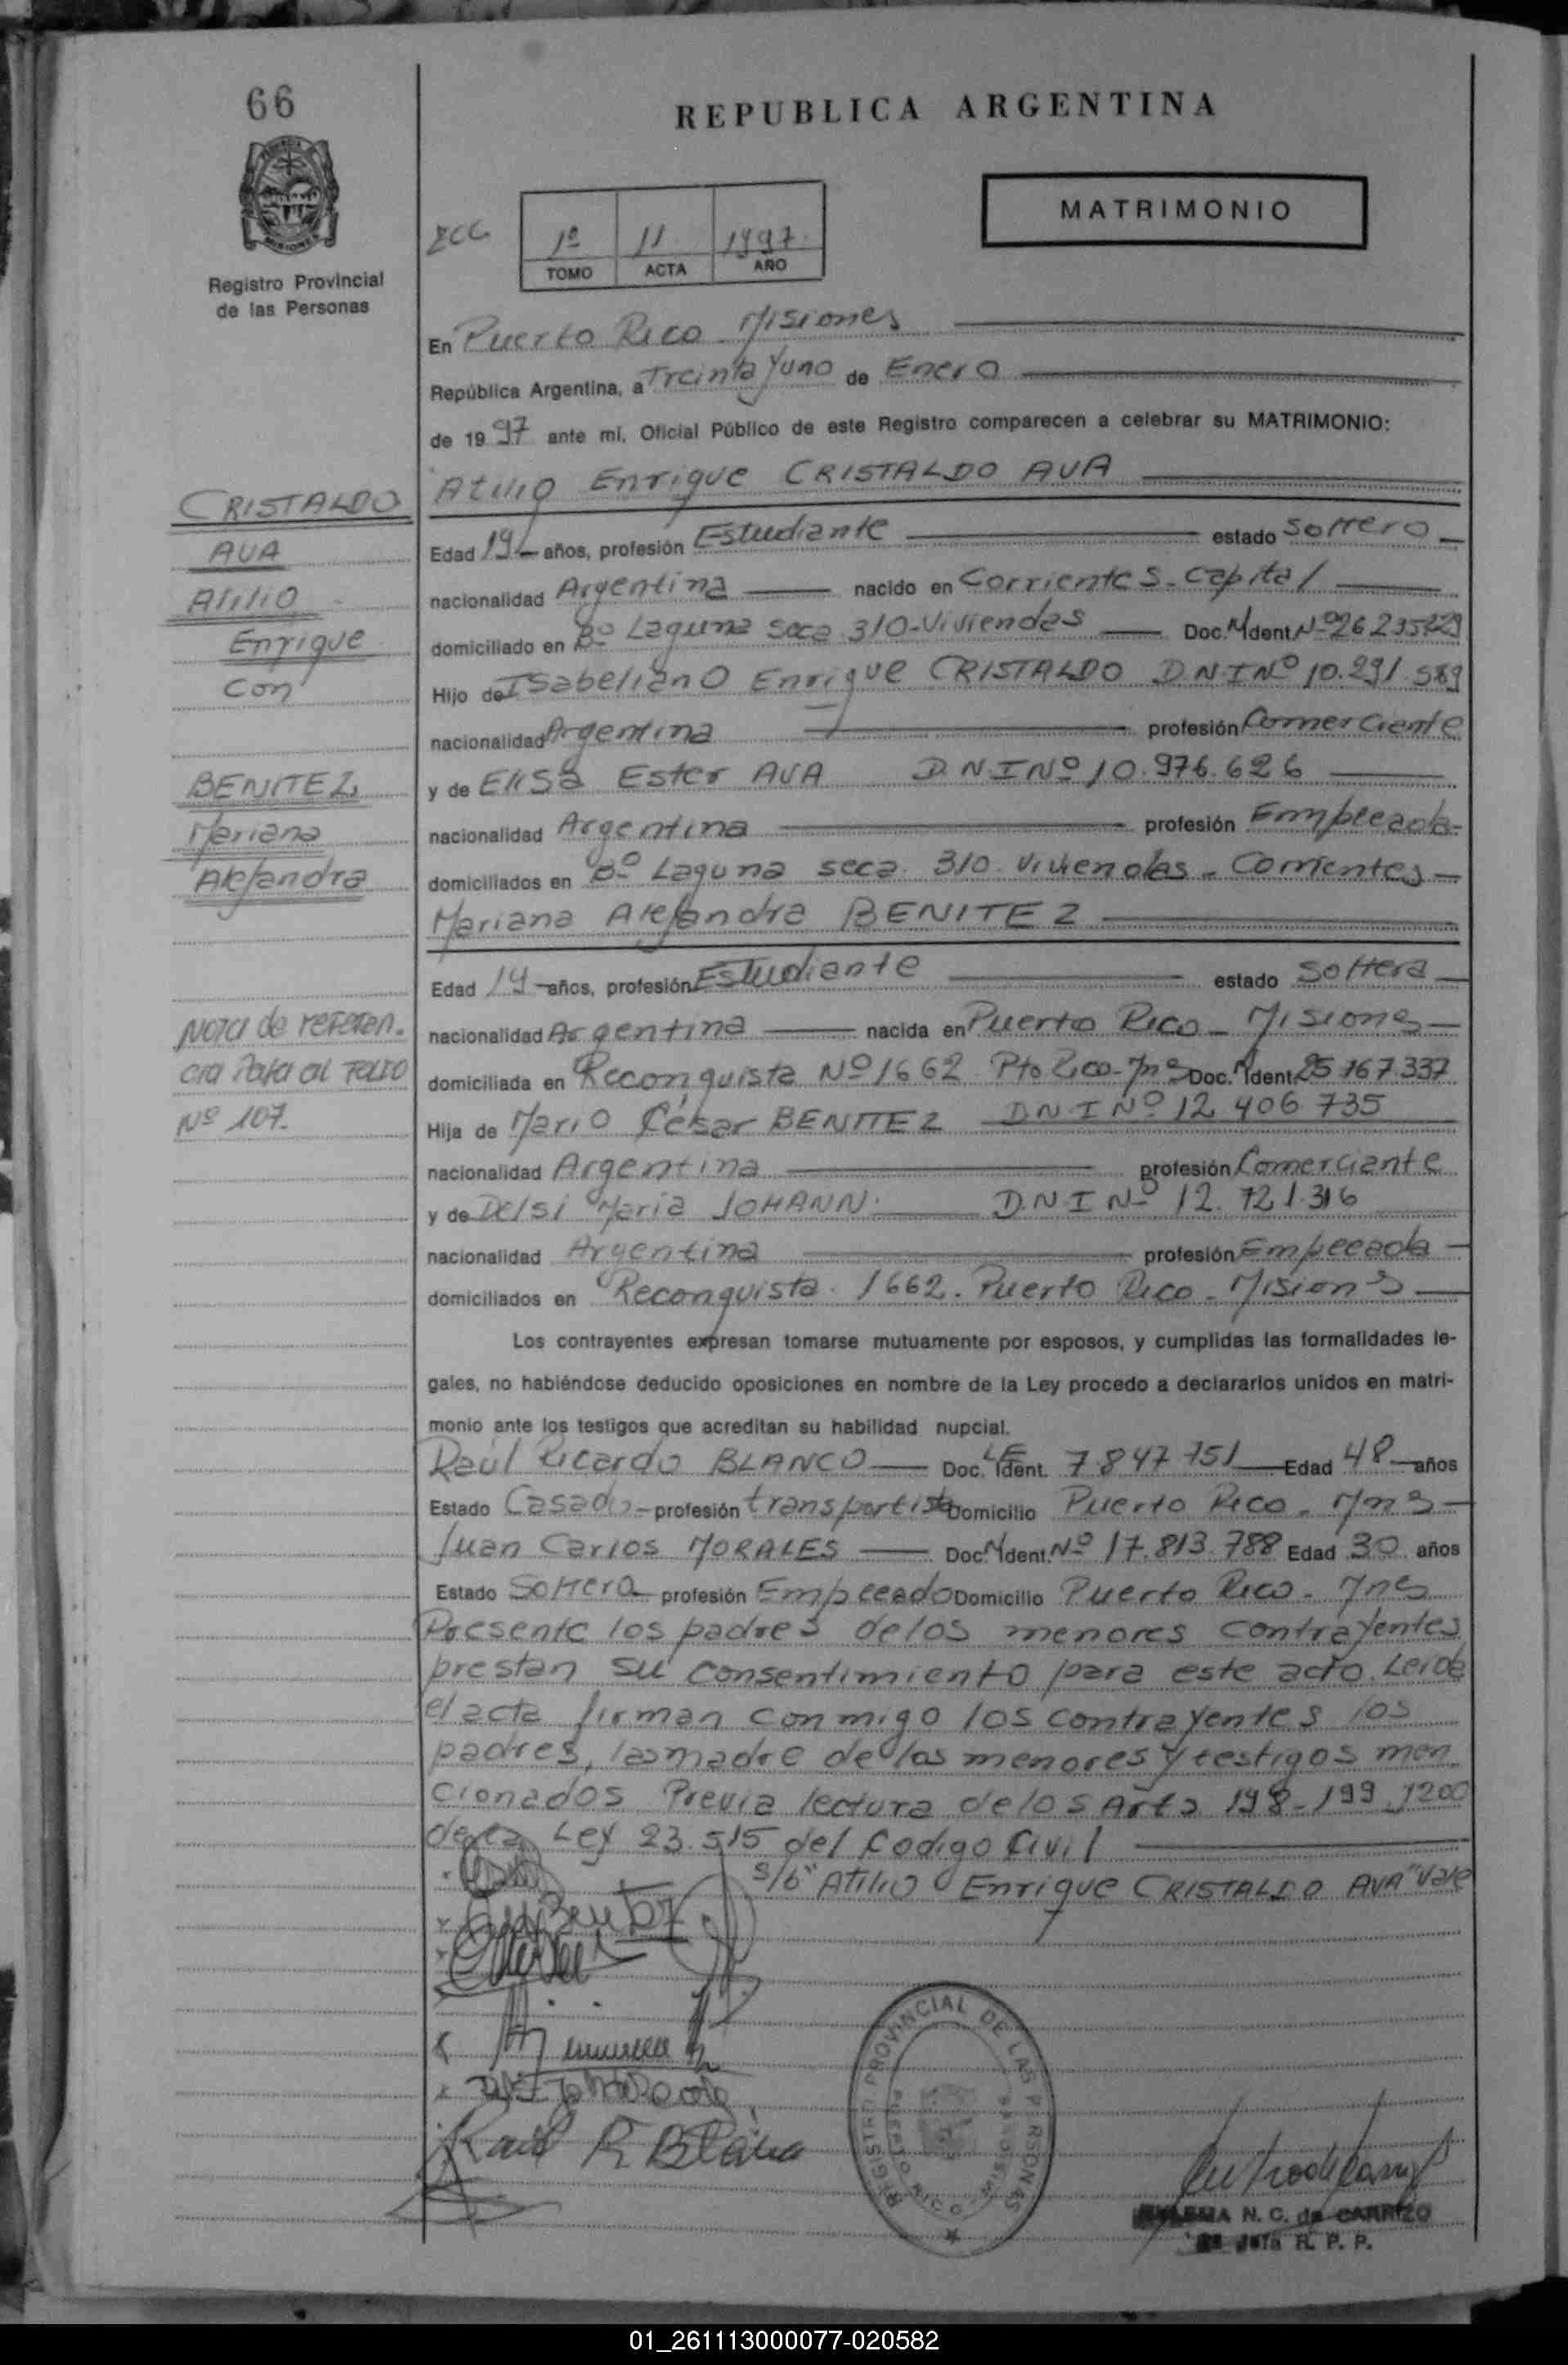 66
REPUBLICA ARGENTINA
MATRIMONIO
1º 11 1997
TOMO ACTA AÑO
Registro Provincial
de las Personas
En Puerto Rico - Misiones
República Argentina, a Treinta y uno de Enero
de 1997 ante mi, Oficial Público de este Registro comparecen a celebrar su MATRIMONIO:
Atilio Enrique CRISTALDO AVA
CRISTALDO
AVA
Atilio
Enrique
con
BENITEZ
Mariana
Alejandra
Nota de referen-
cia Pasa al Folio
Nº 107.
Edad 19 años, profesión Estudiante estado Soltero
nacionalidad Argentina nacido en Corrientes - Capital
domiciliado en Bº Laguna Seca 310-Viviendas Doc. Nident Nº 26.235
Hijo de Isabeliano Enrique CRISTALDO D.N.I Nº 10.291.589
nacionalidad Argentina profesión Comerciante
y de Elisa Ester AVA D.N.I Nº 10.976.626
nacionalidad Argentina profesión Empleada
domiciliados en Bº Laguna seca 310 Viviendas - Corrientes
Mariana Alejandra BENITEZ
Edad 14 años, profesión Estudiante estado Soltera
nacionalidad Argentina nacida en Puerto Rico - Misiones
domiciliada en Reconquista Nº 1662 Pto Rico - Mnes Doc. Nident 25.167.337
Hija de Mario César BENITEZ D.N.I Nº 12.406.735
nacionalidad Argentina profesión Comerciante
y de Delsi María JOHANN D.N.I Nº 12.721.316
nacionalidad Argentina profesión Empleada
domiciliados en Reconquista 1662 - Puerto Rico - Misiones
Los contrayentes expresan tomarse mutuamente por esposos, y cumplidas las formalidades le-
gales, no habiéndose deducido oposiciones en nombre de la Ley procedo a declararlos unidos en matri-
monio ante los testigos que acreditan su habilidad nupcial.
Raúl Ricardo BLANCO Doc. LE Ident. 7.847.751 Edad 48 años
Estado Casado profesión transportista Domicilio Puerto Rico - Mns
Juan Carlos MORALES Doc. Nident. Nº 17.813.788 Edad 30 años
Estado Soltero profesión Empleado Domicilio Puerto Rico - Mnes
Presente los padres de los menores contrayentes
prestan su consentimiento para este acto. Leida
el acta firman conmigo los contrayentes los
padres, las madre de los menores y testigos men
cionados Previa lectura de los Arts 198-199 y 200
de la Ley 23.515 del Codigo Civil
s/b "Atilio Enrique CRISTALDO AVA" Vale
Raul R Blanco
REGISTRO PROVINCIAL DE LAS PERSONAS
PUERTO RICO - MISIONES
N. C. de CARRIZO
Jefa R. P. P.
01_261113000077-020582